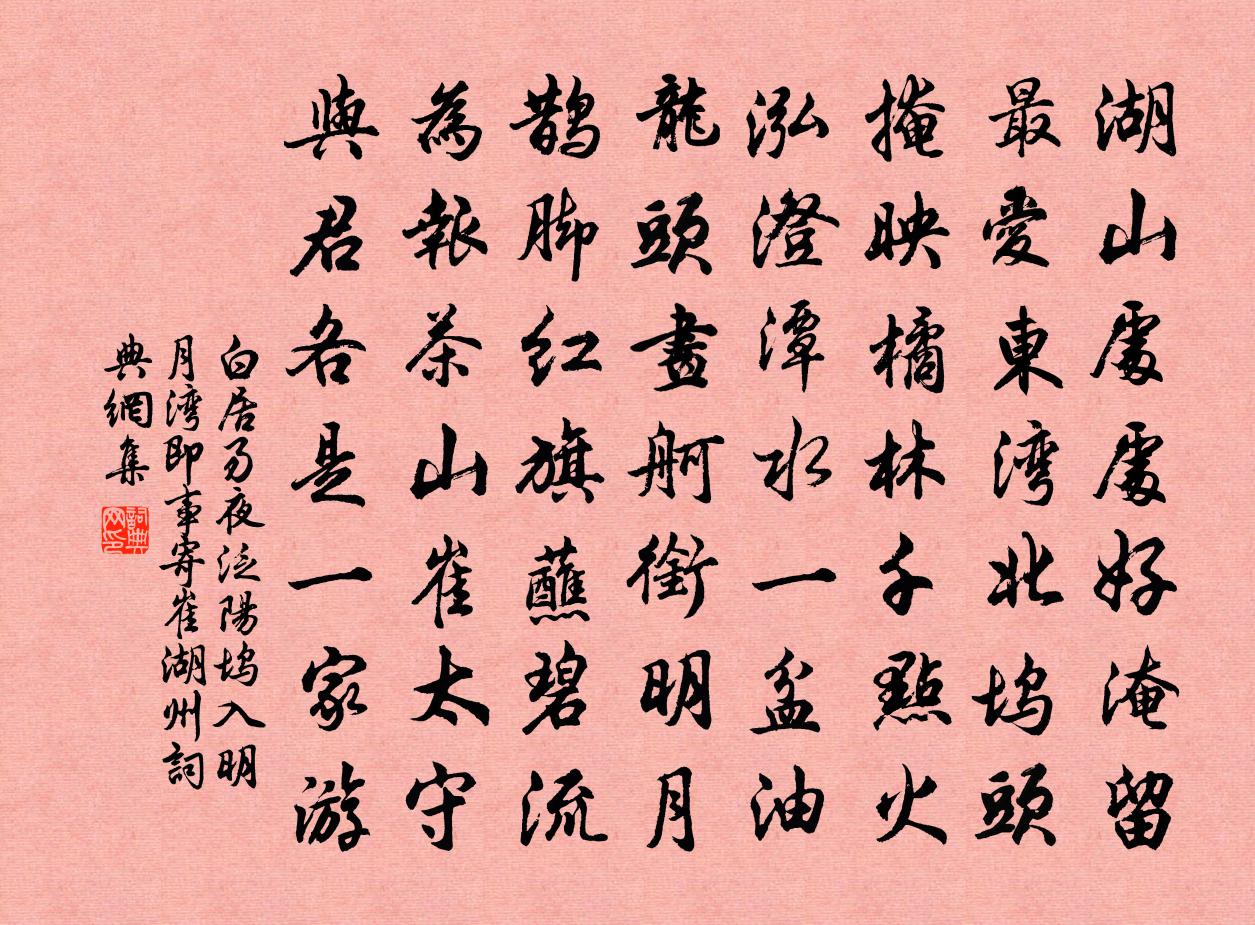 湖山處處好淹留
最愛東灣北塢頭
掩映橘林千點火
泓澄潭水一盆油
龍頭畫舸銜明月
鵲脚紅旗蘸碧流
為報茶山崔太守
與君各是一家游
白居易夜泛陽塢入明
月灣即事寄崔湖州詞
典網集
詞典網印